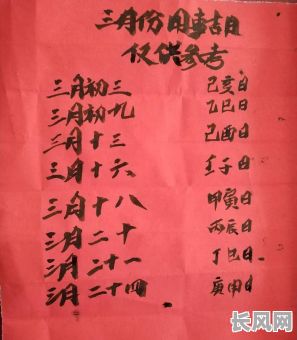 三月份用事吉日
仅供参考
三月初三 己亥日
三月初九 乙巳日
三月十三 己酉日
三月十六 壬子日
三月十八 甲寅日
三月二十 丙辰日
三月二十一 丁巳日
三月二十四 庚申日
长风网